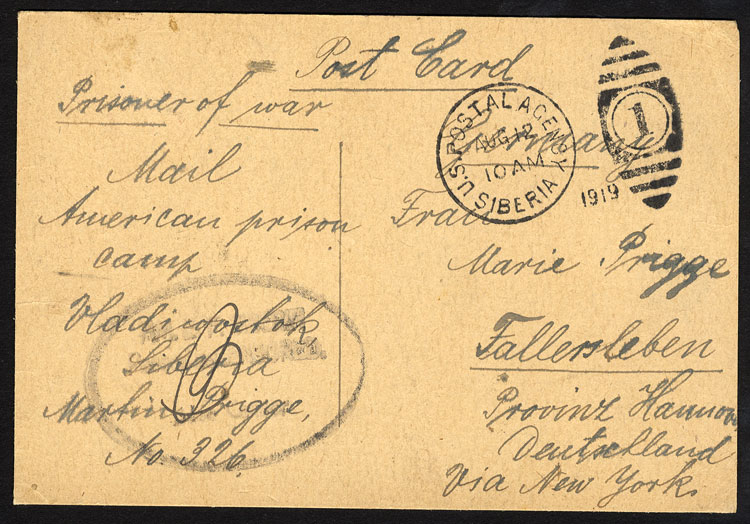 Post Card
Prisoner of war
Mail
American prison
camp
Vladiwostok,
Siberia
Martin Prigge,
No. 326.
U.S. POSTAL AGENCY
AUG 12
10 AM
SIBERIA
1919
1
Germany
Frau
Marie Prigge
Fallersleben
Provinz Hannover
Deutschland
Via New York.